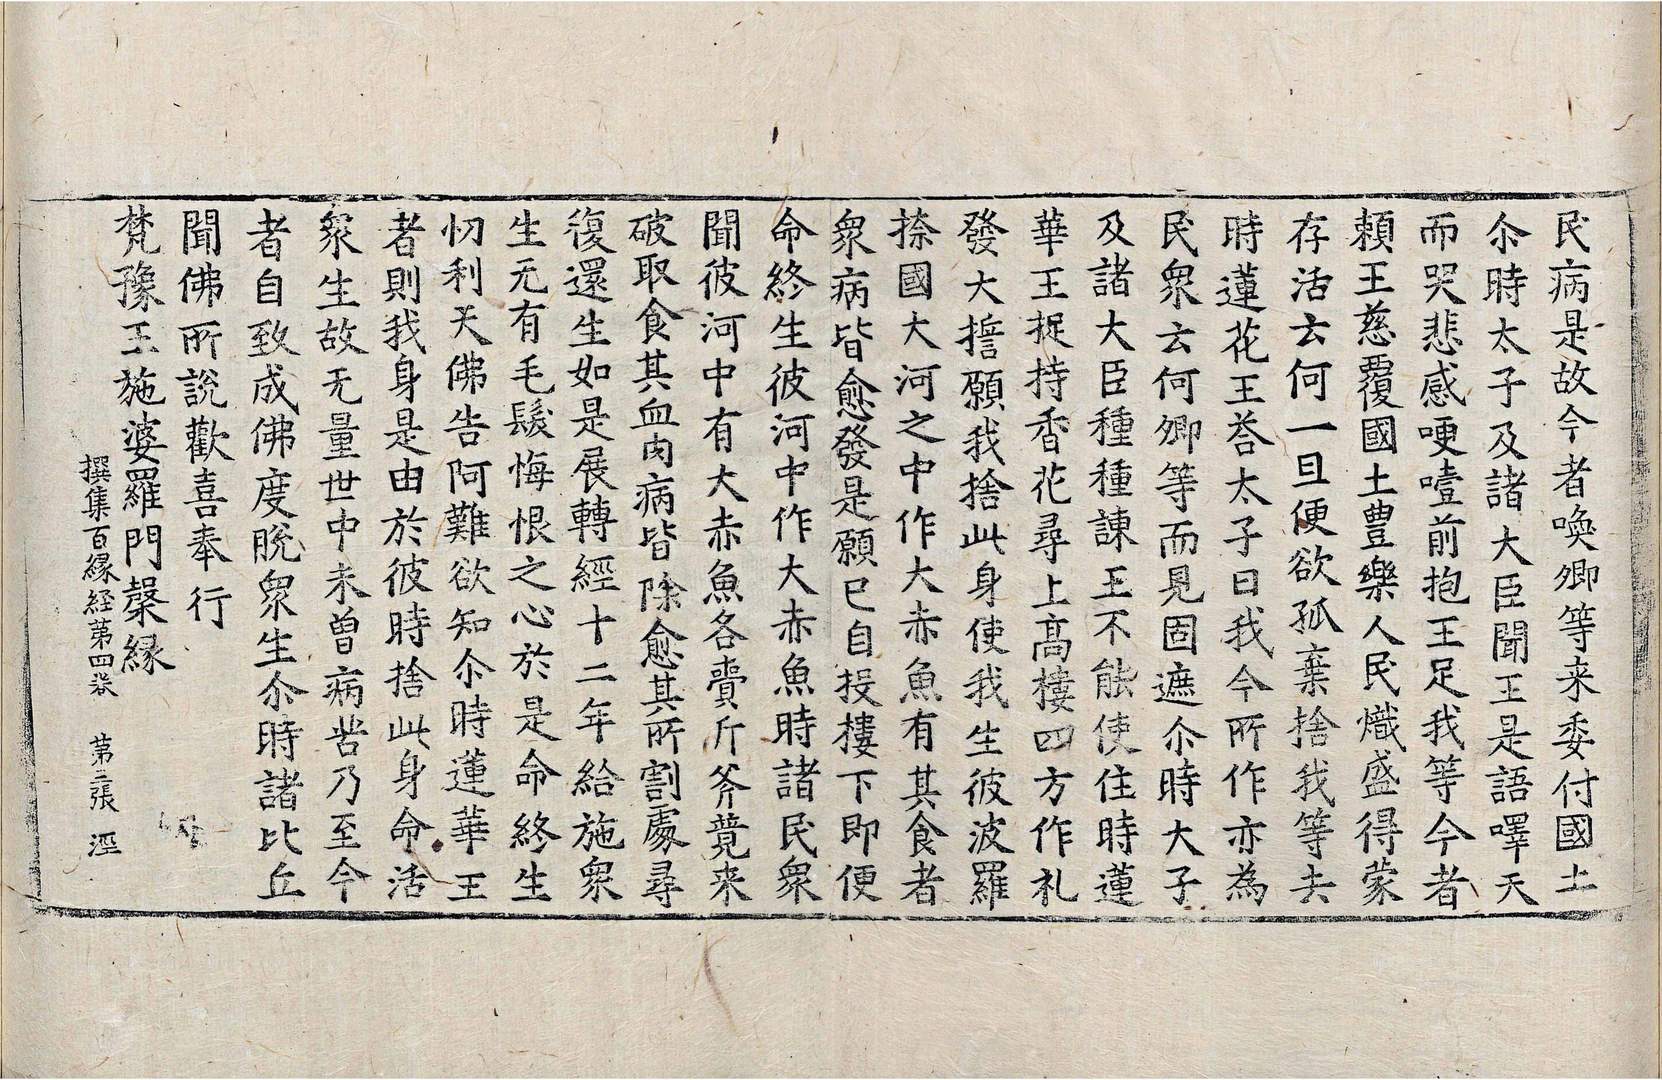 民病是故今者喚卿等来委付國土
尒時太子及諸大臣聞王是語嘷天
而哭悲感哽噎前抱王足我等今者
頼王慈覆國土豊樂人民熾盛得蒙
存活云何一旦便欲孤棄捨我等去
時蓮花王荅太子曰我今所作亦為
民衆云何卿等而見固遮尒時大子
及諸大臣種種諫王不能使住時蓮
華王捉持香花尋上髙樓四方作礼
發大擔願我捨此身使我生彼波羅
捺國大河之中作大赤魚有其食者
衆病皆愈發是願已自投樓下即便
命終生彼河中作大赤魚時諸民衆
聞彼河中有大赤魚各賷斤斧競来
破取食其血肉病皆除愈其所割處尋
復還生如是展轉經十二年給施衆
生无有毛髮悔恨之心於是命終生
忉利天佛告阿難欲知尒時蓮華王
者則我身是由於彼時捨此身命活
衆生故无量世中未曽病苦乃至今
者自致成佛度脫衆生尒時諸比丘
聞佛所說歡喜奉行
梵豫王施婆羅門縏縁
撰集百縁経苐四卷 苐二張 淫